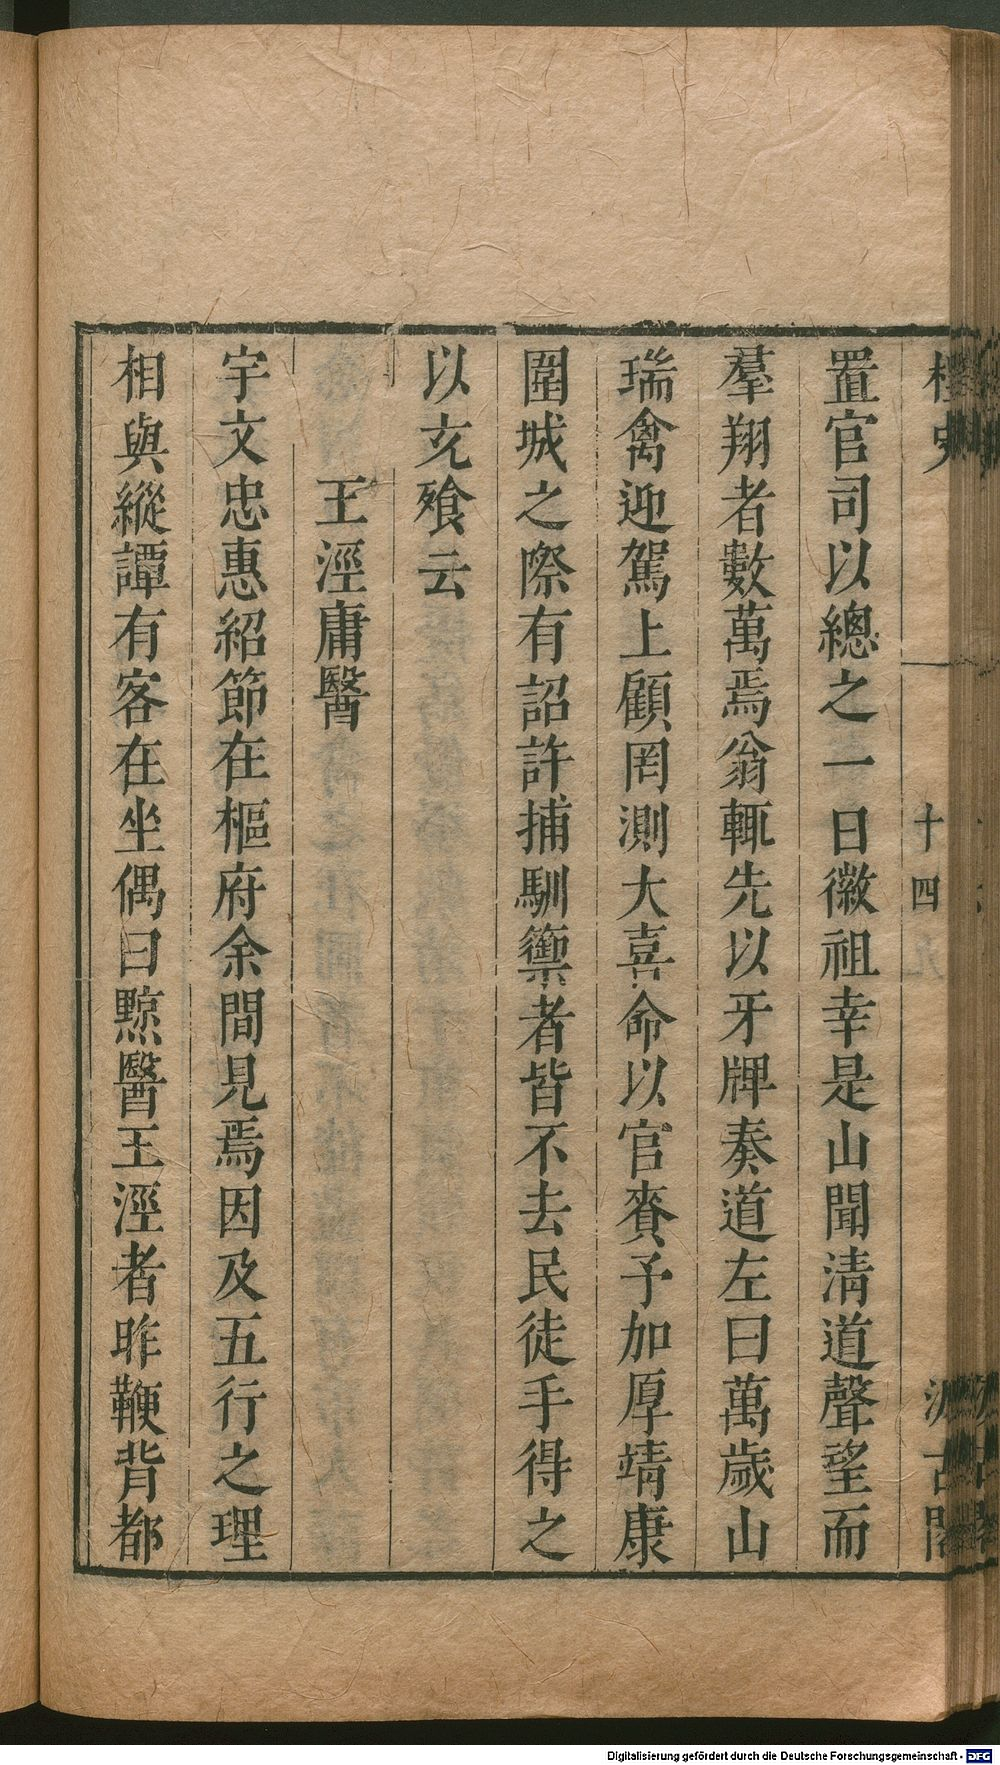 桯史
十四
九
汲古閣
置官司以總之一日徽祖幸是山聞淸道聲望而
羣翔者數萬焉翁輒先以牙牌奏道左曰萬歲山
瑞禽迎駕上顧罔測大喜命以官賚予加厚靖康
圍城之際有詔許捕馴籞者皆不去民徒手得之
以充飱云
王涇庸醫
宇文忠惠紹節在樞府余間見焉因及五行之理
相與縱譚有客在坐偶曰黥醫王涇者昨鞭背都
Digitalisierung gefördert durch die Deutsche Forschungsgemeinschaft - DFG